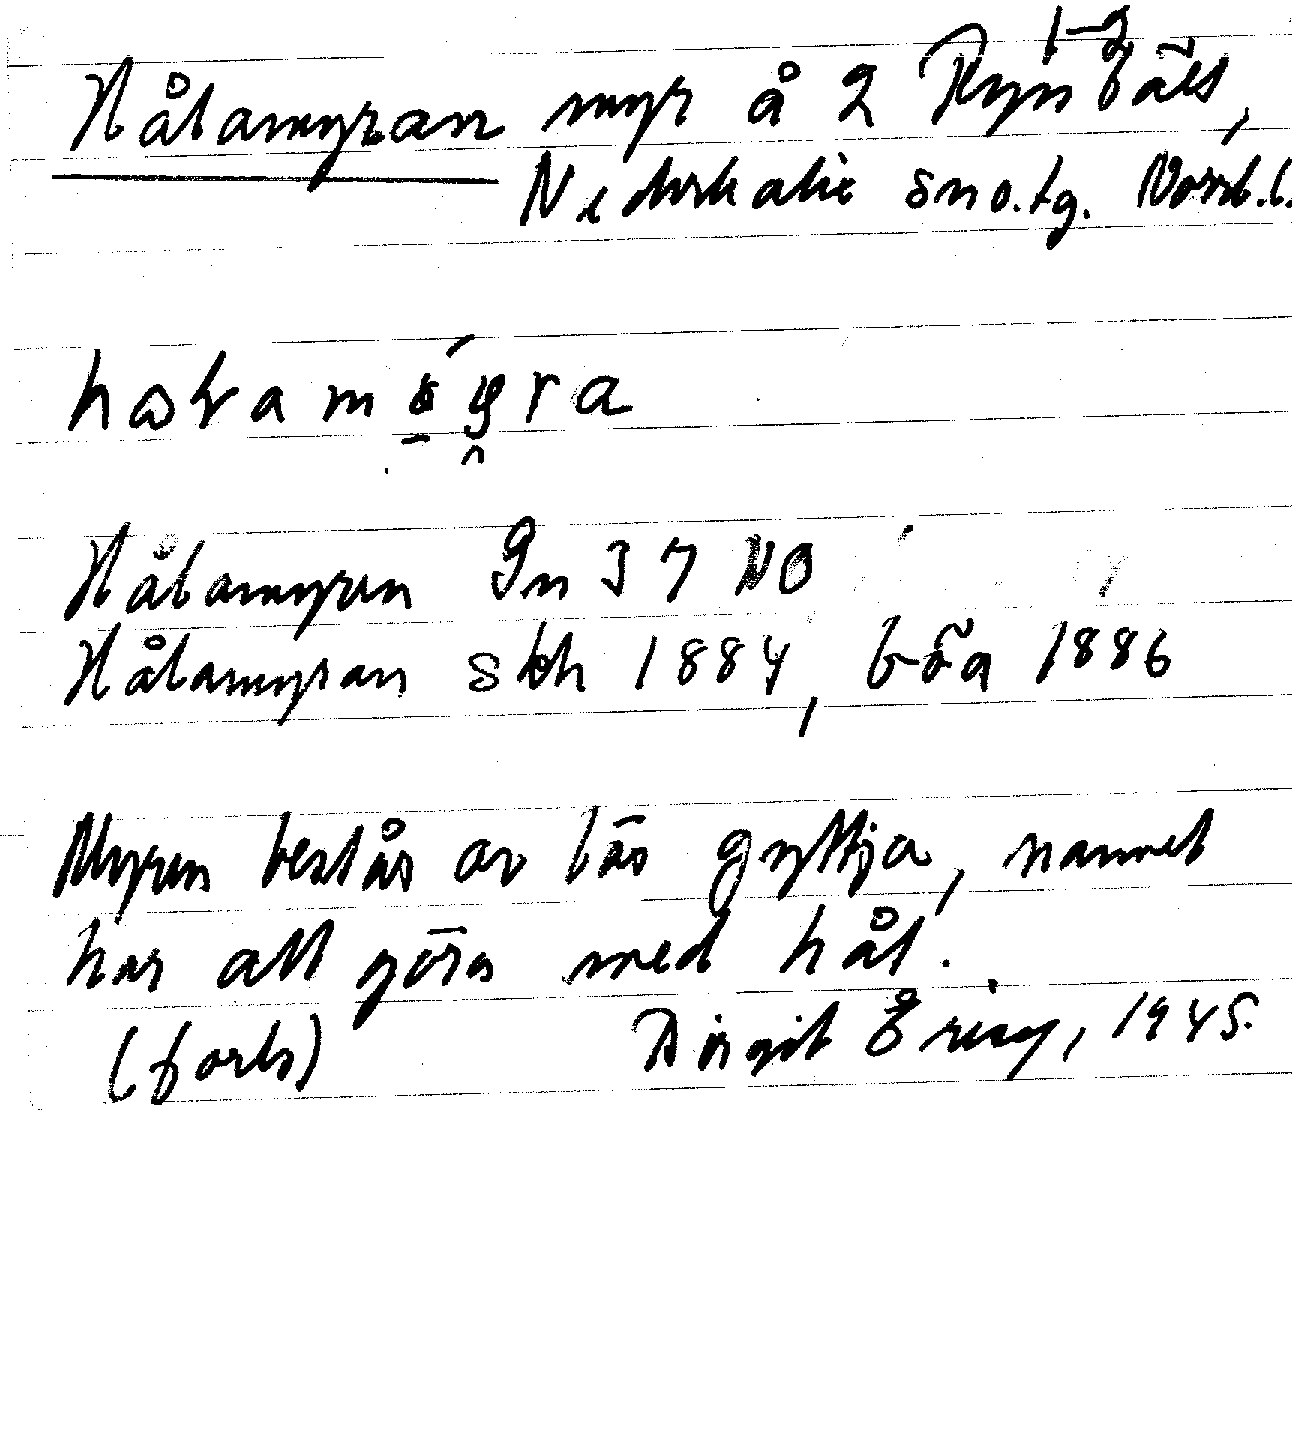 1-2
Hålamyran myr å 2 Rynbäck,
Nederkalix sn o. tg. Norrb. l.
Hålamyren Gn 37 NO
Hålamyran skh 1884, 1886
Myren består av lös gyttja, namnet
har att göra med hål.
(forts) Birgit Ering, 1945.